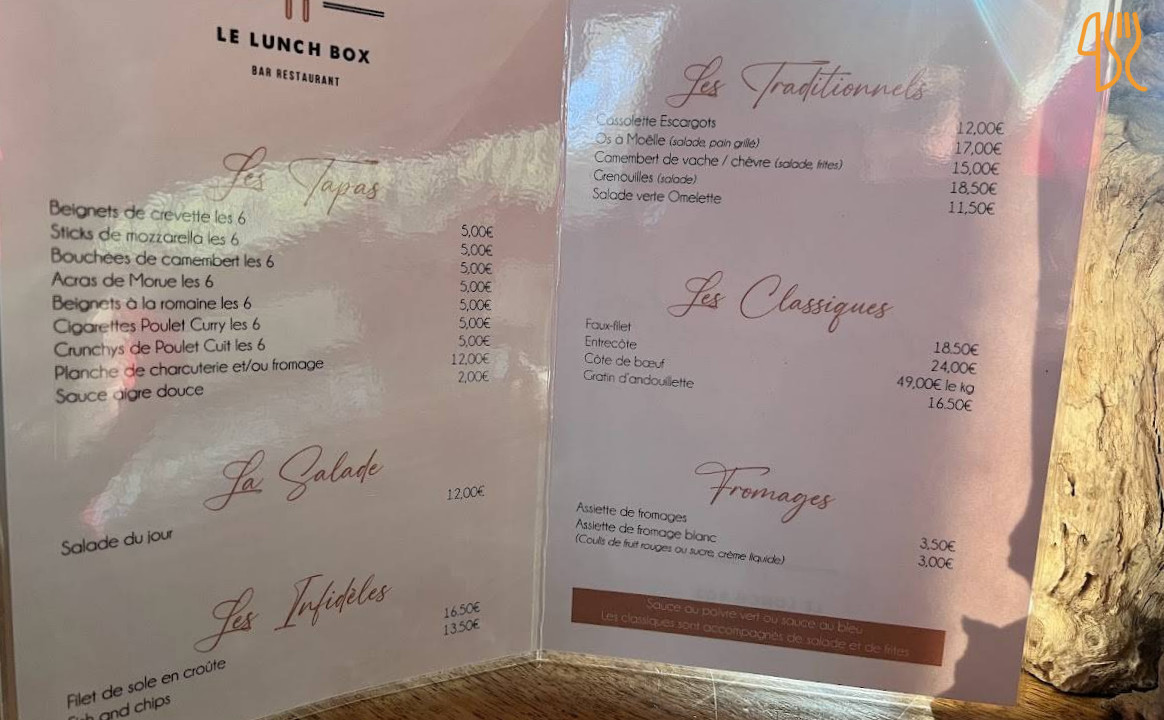 LE LUNCH BOX
BAR RESTAURANT
Les Tapas
Beignets de crevette les 6 5,00€
Sticks de mozzarella les 6 5,00€
Bouchées de camembert les 6 5,00€
Acras de Morue les 6 5,00€
Beignets à la romaine les 6 5,00€
Cigarettes Poulet Curry les 6 5,00€
Crunchys de Poulet Cuit les 6 5,00€
Planche de charcuterie et/ou fromage 12,00€
Sauce aigre douce 2,00€
La Salade
Salade du jour 12,00€
Les Infidèles
Filet de sole en croûte 16.50€
Fish and chips 13.50€
Les Traditionnels
Cassolette Escargots 12,00€
Os à Moëlle (salade, pain grillé) 17,00€
Camembert de vache / chèvre (salade, frites) 15,00€
Grenouilles (salade) 18,50€
Salade verte Omelette 11,50€
Les Classiques
Faux-filet 18.50€
Entrecôte 24,00€
Côte de bœuf 49,00€ le kg
Gratin d'andouillette 16.50€
Fromages
Assiette de fromages 3,50€
Assiette de fromage blanc 3,00€
(Coulis de fruit rouges ou sucre, crème liquide)
Sauce au poivre vert ou sauce au bleu
Les classiques sont accompagnés de salade et de frites